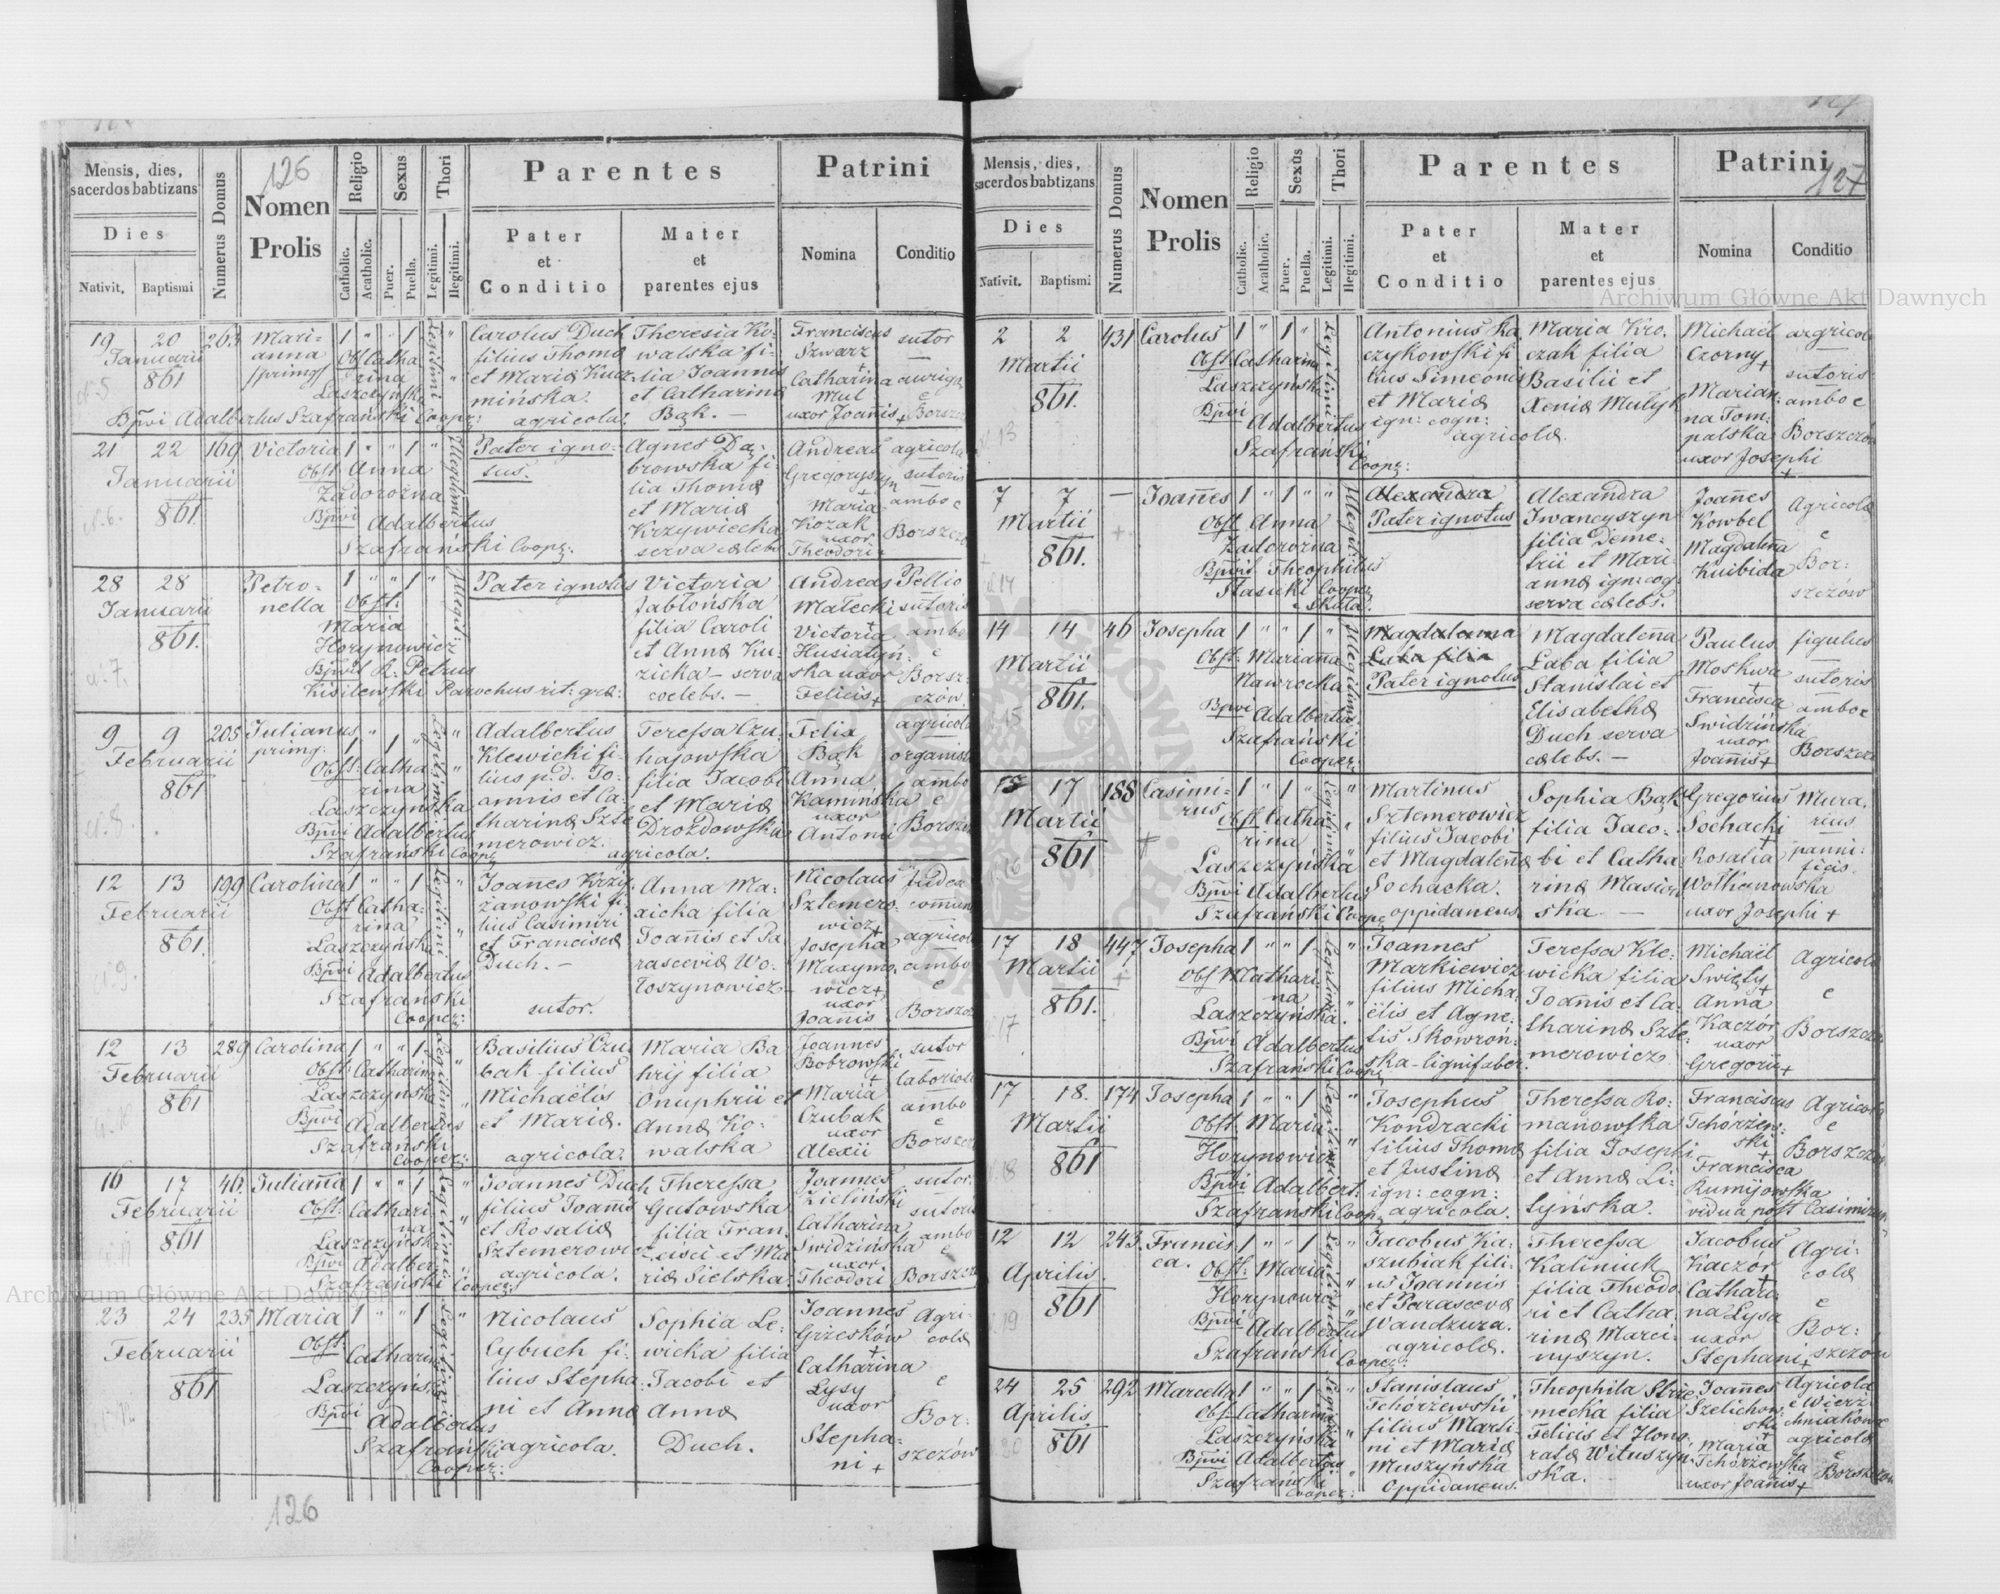 126
Mensis, dies,
sacerdos babtizans
Dies
Nativit. Baptismi
Numerus Domus
Nomen
Prolis
Religio
Catholic. Acatholic.
Sexus
Puer. Puella.
Thori
Legitimi. Ilegitimi.
Parentes
Pater
et
Conditio
Mater
et
parentes ejus
Patrini
Nomina
Conditio
19 20 263 Mari-
anna
Januarii
861
Obst Catha
rina
Laszczyńska
Bpvi Adalbertus Szafrański Cooper:
Legitimi
Carolus Duch
filius Thomæ
et Mariæ Kuz
mińska.
agricola.
Theresia Ko-
walska fi-
lia Joannis
et Catharinæ
Bąk. —
Franciscus
Szwarz +
Catharina
Mul
uxor Joañis +
sutor
—
aurigæ
e
21 22 169 Victoria
Januarii
861.
Obst Anna
Zadorożna
Bpvi Adalbertus
Szafrański Cooper:
Illegitimi
Pater igno-
tus.
Agnes Dą-
browska fi-
lia Thomæ
et Mariæ
Krzywiecka
serva cœlebs
Andreas
Gregoryszyn
+
Maria
Kozak
uxor
Theodori +
agricola
sutoris
ambo e
28 28
Januarii
861.
Petro-
nella
Obst:
Maria
Horynowicz
Bpvit R. Petrus
Kisilewski Parochus rit: græ:
Pater ignotus
Victoria
Jabłońska
filia Caroli
et Annæ Ku-
zicka - serva
cœlebs. —
Andreas
Małecki
+
Victoria
Husiatyń-
ska uxor
Felicis +
Pellio
sutoris
ambo
e
Borsz-
czów
9 9 205 Julianus
primg:
Februarii
861
Obst: Catha-
rina
Laszczyńska
Bpvi Adalbertus
Szafrański Cooper
Adalbertus
Klewicki fi-
lius p.d. Jo-
annis et Ca-
tharinæ Szte
merowicz.
agricola.
Teressa Czu-
hajowska
filia Jacobi
et Mariæ
Drozdowska
Felix
Bąk
Anna
Kamińska
uxor
Antonii
agricola
organista
ambo
e
12 13 199 Carolina
Februarii
861.
Obst Catha-
rina
Laszczyńska
Bpvi Adalbertus
Szafrański
Cooper:
Joañes Krzy-
żanowski fi-
lius Casimiri
et Franciscæ
Duch. —
sutor.
Anna Ma-
xicka filia
Joañis et Pa
rasceviæ Wo-
łoszynowicz
Nicolaus
Sztemero-
wicz +
Josepha
Maxymo-
wicz +
uxor
Joañis
Judex
agricola
ambo
e
12 13 289 Carolina
Februarii
861
Obst: Catharina
Laszczyńska
Bpvi Adalbertus
Szafrański
Cooper:
Basilius Czu
bak filius
Michaëlis
et Mariæ.
agricola.
Maria Ba
hrij filia
Onuphrii et
Annæ Ko-
walska
Joannes
Bobrowski
+
Maria
Czubak
uxor
Alexii
sutor
ambo
e
16 17 46. Juliañna
Februarii
861
Obst: Cathari-
na
Laszczyńska
Bpvi Adalber-
Szafrański Cooper:
Joannes Duch
filius Joañis
et Rosaliæ
Sztemerowicz
agricola.
Theressa
Gutowska
filia Fran-
cisci et Ma
riæ Sielska.
Joannes
Zieliński
Catharina
Swidzińska
uxor
Theodori
sutor.
ambo
e
23 24 235 Maria
Februarii
861
Obst:
Catharina
Laszczyńs:
Bpvi
Adalbertus
Szafrański
Cooper:
Nicolaus
Cybuch fi-
lius Stepha-
ni et Annæ
agricola.
Sophia Le-
wicka filia
Jacobi et
Annæ
Duch.
Joannes
Grzesków
+
Catharina
Łysy
uxor
Stepha-
ni +
Agri-
colæ
e
Bor-
szczów
126
127
Mensis, dies,
sacerdos babtizans
Dies
Nativit. Baptismi
Numerus Domus
Nomen
Prolis
Religio
Catholic. Acatholic.
Sexus
Puer. Puella.
Thori
Legitimi. Ilegitimi.
Parentes
Pater
et
Conditio
Mater
et
parentes ejus
Patrini
Nomina
Conditio
2 2 431 Carolus
Martii
861.
Obst Catharina
Laszczyńska
Bpvi
Adalbertus
Szafrański
Cooper:
Antonius Ka
czykowski fi
lius Simeonis
et Mariæ
ign: cogn:
agricolæ.
Maria Kro-
czak filia
Basilii et
Xeniæ Mulyk
Michaël
Czorny +
Marian-
na Tom-
palska
uxor Josephi
+
agricola
sutoris
ambo e
Borszczów
7 7 — Joañes
Martii
861.
Obst Anna
Zadorożna
Bpvit Theophilus
Stasicki Cooper
Skała.
Alexandra
Pater ignotus
Alexandra
Iwancyszyn
filia Deme-
trii et Mari-
annæ ign: cog
serva cœlebs.
Joañes
Kowbel
Magdaleña
Kuibida
Agricolæ
e
Bor-
szczów
14 14 46 Josepha
Martii
861.
Obst: Marianna
Nawrocka
Bpvi Adalbertus
Szafrański
Cooper:
Magdalenna
Łaba filia
Pater ignotus
Magdaleña
Łaba filia
Stanislai et
Elisabethæ
Duch serva
cœlebs. —
Paulus
Moskwa
+
Francisca
Swidzińska
uxor
Joañis +
figulus
sutoris
ambo e
17 188 Casimi-
rus
Martii
861
Obst Catha-
rina
Laszczyńska
Bpvi Adalbertus
Szafrański Cooper
Martinus
Sztemerowicz
filius Jacobi
et Magdaleñæ
Sochacka.
oppidaneus
Sophia Bąk
filia Jaco-
bi et Catha
rinæ Masiow
ska —
Gregorius
Sochacki
+
Rosalia
Wołkanowska
uxor Josephi +
Mura-
rius
panni-
ficis.
17 18 447 Josepha
Martii
861.
Obst Kathari
na
Laszczyńska.
Bpvi Adalbertus
Szafrański Cooper
Joannes
Markiewicz
filius Micha-
ëlis et Agne-
tis Skowroń-
ska - lignifaber.
Teressa Kle-
wicka filia
Joañis et Ca-
tharinæ Szte-
merowicz
Michaël
Swięty +
Anna
Kaczór
uxor
Gregorii +
Agricolæ
e
17 18. 174 Josepha
Martii
861
Obst. Maria
Horynowicz
Bpvi Adalbert:
Szafrański Coop
Josephus
Kondracki
filius Thomæ
et Justinæ
ign: cogn:
agricola.
Theressa Ro-
manowska
filia Josephi
et Annæ Li-
syńska.
Franciscus
Tchórzew-
ski
+
Francisca
Rumijowska
vidua post Casimirum
Agricolæ
e
Borszczów
12 12 243 Francis-
ca.
Aprilis
861
Obst: Maria
Horynowicz
Bpvi Adalbertus
Szafrański
Cooper:
Jacobus Ka-
szubiak fili-
us Joannis
et Parascevæ
Wandzura.
agricolæ.
Theressa
Kaliniuk
filia Theodo
ri et Catha-
rinæ Marci-
nyszyn.
Jacobus
Kaczór
+
Cathari-
na Łysa
uxor
Stephani +
Agri-
colæ
e
Bor-
szczów
24 25 292 Marcella
Aprilis
861
Obst Catharina
Laszczyńska
Bpvi Adalbertus
Szafrański
Cooper:
Stanislaus
Tchórzewski
filius Marti-
ni et Mariæ
Muszyńska
oppidaneus.
Theophila Strze
mecka filia
Felicis et Hono-
ratæ Wituszyń-
ska.
Joañes
Szelichow
ski
+
Maria
Tchórzewska
uxor Joañis +
Agricola
agricolæ
e
Archiwum Główne Akt Dawnych
Archiwum Główne Akt Dawnych